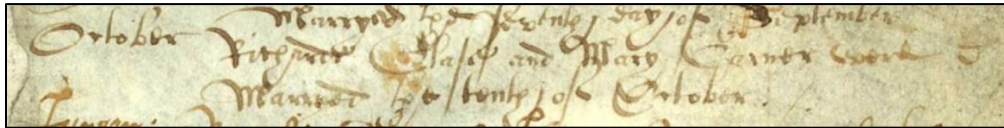 Marryed the seventh day of September
October Richarde Glase and Mary Carner were
Marryed the tenth of October